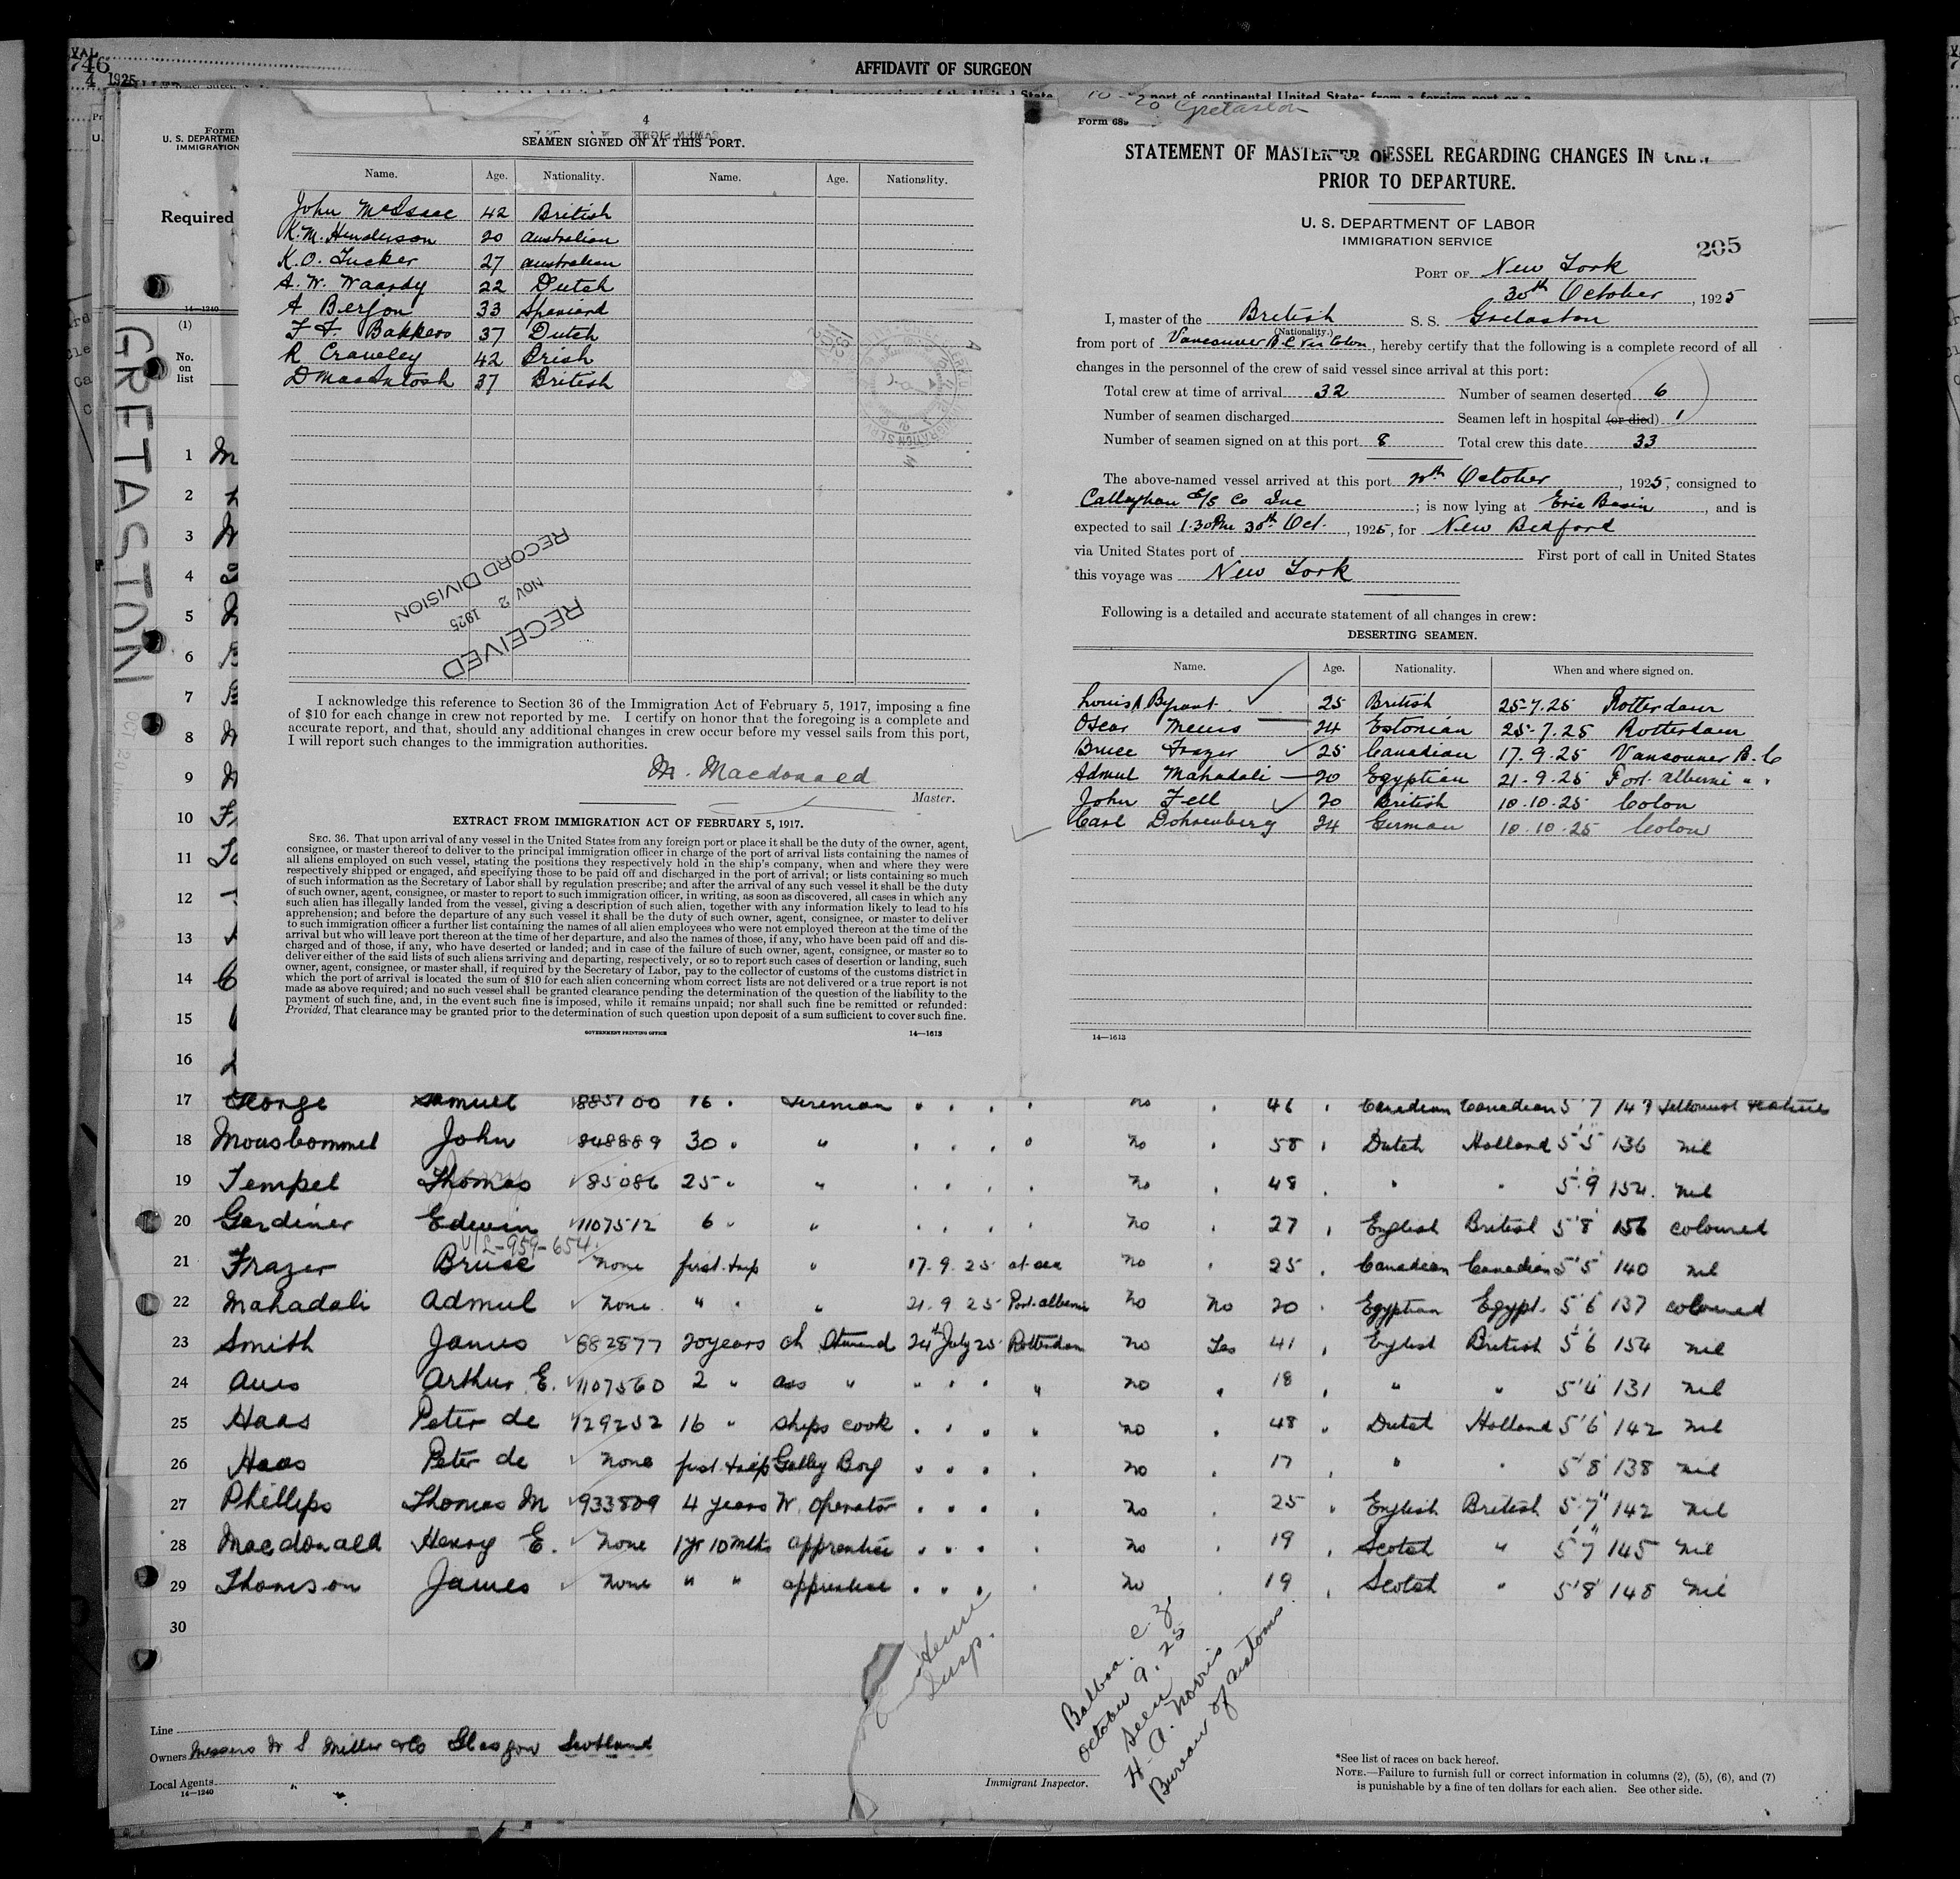 VAL
746
4 1925
AFFIDAVIT OF SURGEON
port of continental United States from a foreign port or a
Form
U. S. DEPARTMEN
IMMIGRATION
Required
14—1240
(1)
No.
on
list
GRETASTON
4
SEAMEN SIGNED ON AT THIS PORT.
Name. Age. Nationality. Name. Age. Nationality.
John McIsaac 42 British
K. M. Henderson 20 Australian
K. O. Tucker 27 Australian
A. W. Waardy 22 Dutch
A Berjon 33 Spaniard
F. F. Bakkers 37 Dutch
R Crawley 42 British
D MacIntosh 37 British
RECEIVED
NOV 2 1925
RECORD DIVISION
I acknowledge this reference to Section 36 of the Immigration Act of February 5, 1917, imposing a fine
of $10 for each change in crew not reported by me. I certify on honor that the foregoing is a complete and
accurate report, and that, should any additional changes in crew occur before my vessel sails from this port,
I will report such changes to the immigration authorities.
M. Macdonald
Master.
EXTRACT FROM IMMIGRATION ACT OF FEBRUARY 5, 1917.
SEC. 36. That upon arrival of any vessel in the United States from any foreign port or place it shall be the duty of the owner, agent,
consignee, or master thereof to deliver to the principal immigration officer in charge of the port of arrival lists containing the names of
all aliens employed on such vessel, stating the positions they respectively hold in the ship's company, when and where they were
respectively shipped or engaged, and specifying those to be paid off and discharged in the port of arrival; or lists containing so much
of such information as the Secretary of Labor shall by regulation prescribe; and after the arrival of any such vessel it shall be the duty
of such owner, agent, consignee, or master to report to such immigration officer, in writing, as soon as discovered, all cases in which any
such alien has illegally landed from the vessel, giving a description of such alien, together with any information likely to lead to his
apprehension; and before the departure of any such vessel it shall be the duty of such owner, agent, consignee, or master to deliver
to such immigration officer a further list containing the names of all alien employees who were not employed thereon at the time of the
arrival but who will leave port thereon at the time of her departure, and also the names of those, if any, who have been paid off and dis-
charged and of those, if any, who have deserted or landed; and in case of the failure of such owner, agent, consignee, or master so to
deliver either of the said lists of such aliens arriving and departing, respectively, or so to report such cases of desertion or landing, such
owner, agent, consignee, or master shall, if required by the Secretary of Labor, pay to the collector of customs of the customs district in
which the port of arrival is located the sum of $10 for each alien concerning whom correct lists are not delivered or a true report is not
made as above required; and no such vessel shall be granted clearance pending the determination of the question of the liability to the
payment of such fine, and, in the event such fine is imposed, while it remains unpaid; nor shall such fine be remitted or refunded:
Provided, That clearance may be granted prior to the determination of such question upon deposit of a sum sufficient to cover such fine.
GOVERNMENT PRINTING OFFICE 14—1613
Gretaston
Form 689
STATEMENT OF MASTER OF VESSEL REGARDING CHANGES IN CREW
PRIOR TO DEPARTURE.
U. S. DEPARTMENT OF LABOR
IMMIGRATION SERVICE
205
PORT OF New York
30th October, 1925
I, master of the British S. S. Gretaston
(Nationality.)
from port of Vancouver B.C via Colon, hereby certify that the following is a complete record of all
changes in the personnel of the crew of said vessel since arrival at this port:
Total crew at time of arrival 32 Number of seamen deserted 6
Number of seamen discharged Seamen left in hospital (or died) 1
Number of seamen signed on at this port 8 Total crew this date 33
The above-named vessel arrived at this port October, 1925, consigned to
Callaghan S/S Co Inc; is now lying at Erie Basin, and is
expected to sail 1.30 Pm 30th Oct., 1925, for New Bedford
via United States port of First port of call in United States
this voyage was New York
Following is a detailed and accurate statement of all changes in crew:
DESERTING SEAMEN.
Name. Age. Nationality. When and where signed on.
Louis A Bryant 25 British 25-7.25 Rotterdam
Oscar Meus 24 Estonian 25-7.25 Rotterdam
Bruce Frazer 25 Canadian 17.9.25 Vancouver B.C
Admul Mahadali 20 Egyptian 21.9.25 Port Alberni " "
John Fell 20 British 10.10.25 Colon
Carl Dohrenberg 24 German 10.10.25 Colon
14—1613
1
2
3
4
5
6
7
8
9
10
11
12
13
14
15
16
17 George Samuel 885700 16 " Fireman " " " " no " 46 " Canadian Canadian 5'7 149
18 Mousbommel John 848889 30 " " " " " " no " 58 " Dutch Holland 5'5 136 nil
19 Tempel Thomas 85086 25 " " " " " " no " 48 " " " 5'9 154 nil
20 Gardiner Edwin 1107512 6 " " " " " " no " 27 " English British 5'8 156 coloured
V/L-959-654
21 Frazer Bruce none first trip " 17.9.25 at sea no " 25 " Canadian Canadian 5'5 140 nil
22 Mahadali Admul none " " " 21.9.25 Port Alberni no no 20 " Egyptian Egypt. 5'6 137 coloured
23 Smith James 882877 20 years ch Steward 24th July 25 Rotterdam no Yes 41 " English British 5'6 154 nil
24 Aves Arthur E. 1107560 2 " ass " " " " " no " 18 " " " 5'4 131 nil
25 Haas Peter de 729252 16 " ships cook " " " " no " 48 " Dutch Holland 5'6 142 nil
26 Haas Peter de none first trip Galley Boy " " " " no " 17 " " " 5'8 138 nil
27 Phillips Thomas M 933809 4 years W. operator " " " " no " 25 " English British 5'7" 142 nil
28 Macdonald Henry E. none 1 yr 10 mths apprentice " " " " no " 19 " Scotch " 5'7" 145 nil
29 Thomson James none " " apprentice " " " " no " 19 " Scotch " 5'8 148 nil
30
Insp.
Balboa. C. Z.
October 9, 25
Seen
H. A. Norris
Bureau of Customs
Line
Owners Messrs W S Miller & Co Glasgow Scotland
Local Agents " "
14—1240
Immigrant Inspector.
*See list of races on back hereof.
NOTE.—Failure to furnish full or correct information in columns (2), (5), (6), and (7)
is punishable by a fine of ten dollars for each alien. See other side.